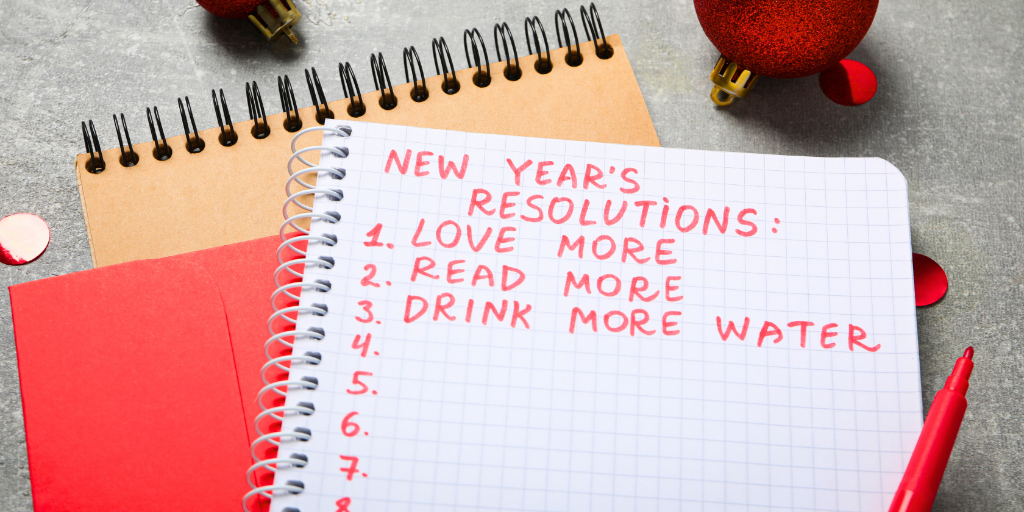 NEW YEAR'S
RESOLUTIONS:
1. LOVE MORE
2. READ MORE
3. DRINK MORE WATER
4.
5.
6.
7.
8